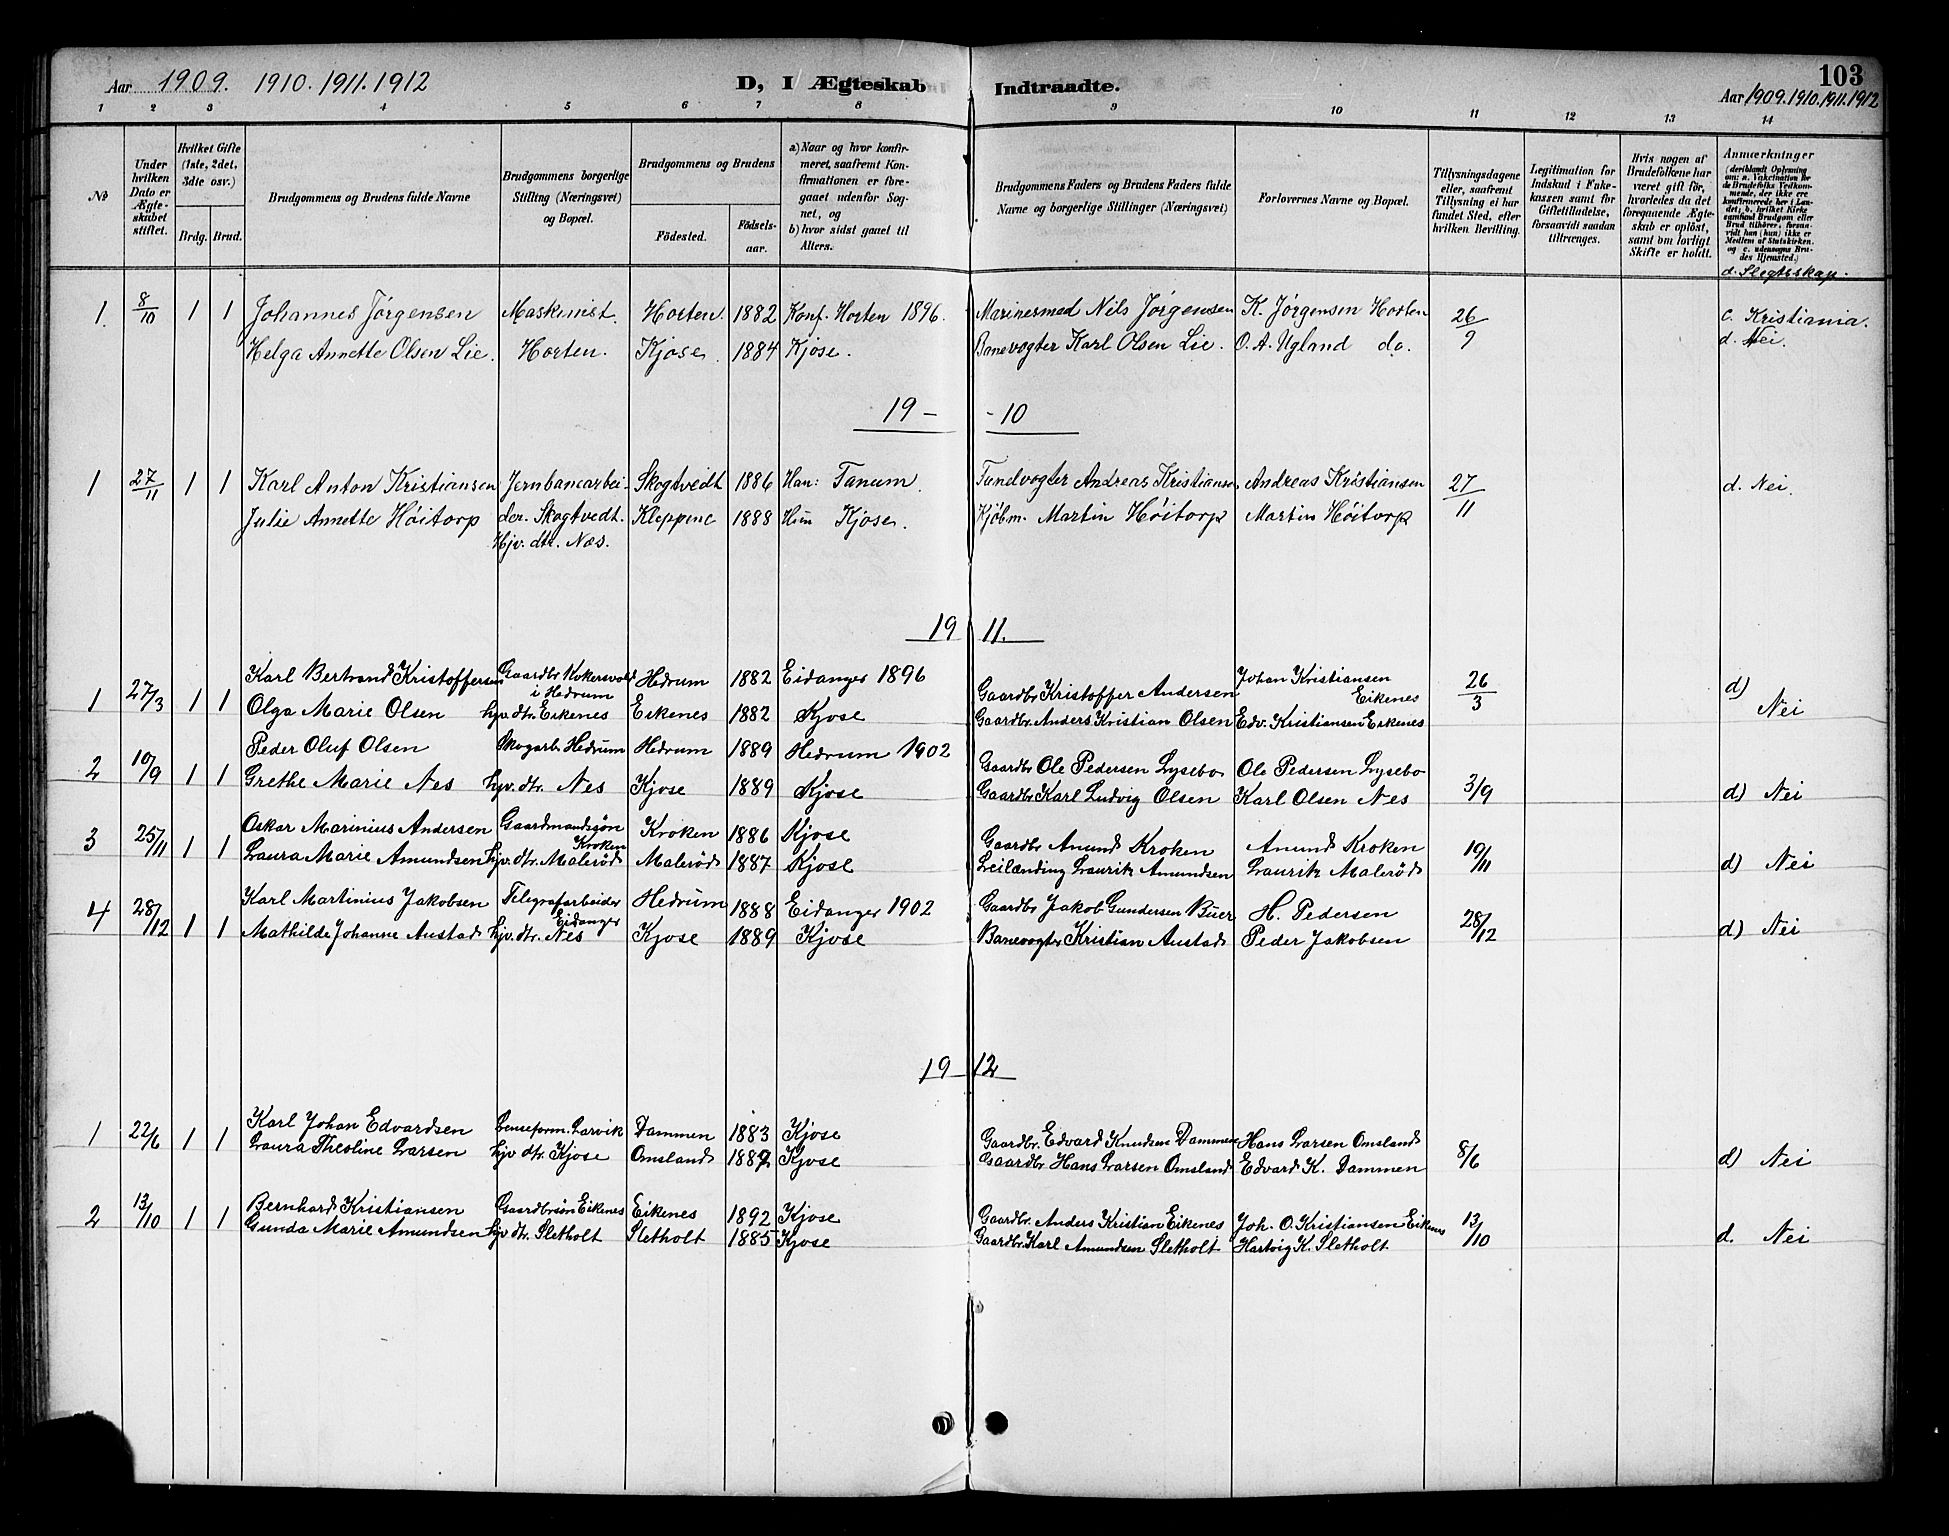 Aar 1909. 1910. 1911. 1912
D, I Ægteskab Indtraadte.
103
Aar 1909. 1910. 1911. 1912
1 2 3 4 5 6 7 8 9 10 11 12 13 14
No
Under hvilken Dato er Ægteskabet stiftet.
Hvilket Gifte (1ste, 2det, 3die osv.)
Brdg. Brud.
Brudgommens og Brudens fulde Navne
Brudgommens borgerlige Stilling (Næringsvei) og Bopæl.
Brudgommens og Brudens
Fødested.
Fødselsaar.
a) Naar og hvor konfirmeret, saafremt Konfirmationen er foregaaet udenfor Sognet, og
b) hvor sidst gaaet til Alters.
Brudgommens Faders og Brudens Faders fulde Navne og borgerlige Stillinger (Næringsvei)
Forlovernes Navne og Bopæl.
Tillysningsdagene eller, saafremt Tillysning ei har fundet Sted, efter hvilken Bevilling.
Legitimation for Indskud i Fakekassen samt for Giftetilladelse, forsaavidt saadan tiltrænges.
Hvis nogen af Brudefolkene har været gift før, hvorledes da det foregaaende Ægteskab er opløst, samt om lovligt Skifte er holdt.
Anmærkninger
(deriblandt Oplysning om: a. Vakcination for de Brudefolks Vedkommende, der ikke ere konfirmerede her i Landet; b. hvilket Kirkesamfund Brudgom eller Brud tilhører, forsaavidt han (hun) ikke er Medlem af Statskirken, og c. udensogns Brudes Hjemsted.)
d. Slegtsskap.
1. 8/10 1 1 Johannes Jørgensen Maskinist. Horten. 1882 Konf. Horten 1896. Marinesmed Nils Jørgensen K. Jørgensen Horten 26/9 c. Kristiania.
Helga Annette Olsen Lie. Horten. Kjose. 1884 Kjose. Banevogter Karl Olsen Lie. O. A. Ugland do. d. Nei.
19 - - 10
1 27/11 1 1 Karl Anton Kristiansen Jernbanearbei- Skogtvedt 1886 Han: Tanum. Andreas Kristiansen. Andreas Kristiansen 27/11 d. Nei.
Julie Annette Höitorp der. Skogtvedt. Kleppene 1888 Hun Kjose. Kjøbm. Martin Höitorp Martin Höitorp
Hjv. dtr. Næs.
19 11.
1 27/3 1 1 Karl Bertrand Kristoffersen Gaardbr. Kokersvold i Hedrum Hedrum 1882 Eidanger 1896 Gaardbr Kristoffer Andersen Johan Kristiansen Eikenes 26/3 d) Nei
Olga Marie Olsen hjv. dtr. Eikenes Eikenes 1882 Kjose Gaardbr. Anders Kristian Olsen Edv. Kristiansen Eikenes
2 10/9 1 1 Peder Oluf Olsen Skogarb. Hedrum Hedrum 1889 Hedrum 1902 Gaardbr Ole Pedersen Lysebo Ole Pedersen Lysebo 3/9 d) Nei
Grethe Marie Nes hjv. dtr. Nes Kjose 1889 Kjose Gaardbr Karl Ludvig Olsen Karl Olsen Nes
3 25/11 1 1 Oskar Marinius Andersen Gaardmandssøn Kroken Kroken 1886 Kjose Gaardbr Amund Kroken Amund Kroken 19/11 d) Nei
Laura Marie Amundsen hjv. dtr. Malerød Malerød 1887 Kjose Leilænding Lauritz Amundsen Lauritz Malerød
4 28/12 1 1 Karl Martinius Jakobsen Telegrafarbeider Eidanger Hedrum 1888 Eidanger 1902 Gaardbr Jakob Gundersen Buer H. Pedersen 28/12 d) Nei
Mathilde Johanne Austad hjv. dtr. Nes Kjose 1889 Kjose Banevogter Kristian Austad Peder Jakobsen
19 12
1 22/6 1 1 Karl Johan Edvardsen Lenseform. Larvik Dammen 1883 Kjose Gaardbr. Edvard Knudsen Dammen Hans Larsen Omsland 8/6 d) Nei
Laura Theoline Larsen hjv dtr. Kjose Omsland Kjose Gaardbr Hans Larsen Omsland Edvard K. Dammen
2 13/10 1 1 Bernhard Kristiansen Gaardbrsøn Eikenes Eikenes 1892 Kjose Gaardbr. Anders Kristian Eikenes Joh. O. Kristiansen Eikenes 13/10 d. Nei
Gunda Marie Amundsen hjv dtr. Sletholt Sletholt 1885 Kjose Gaardbr. Karl Amundsen Sletholt Hartvig K. Sletholt